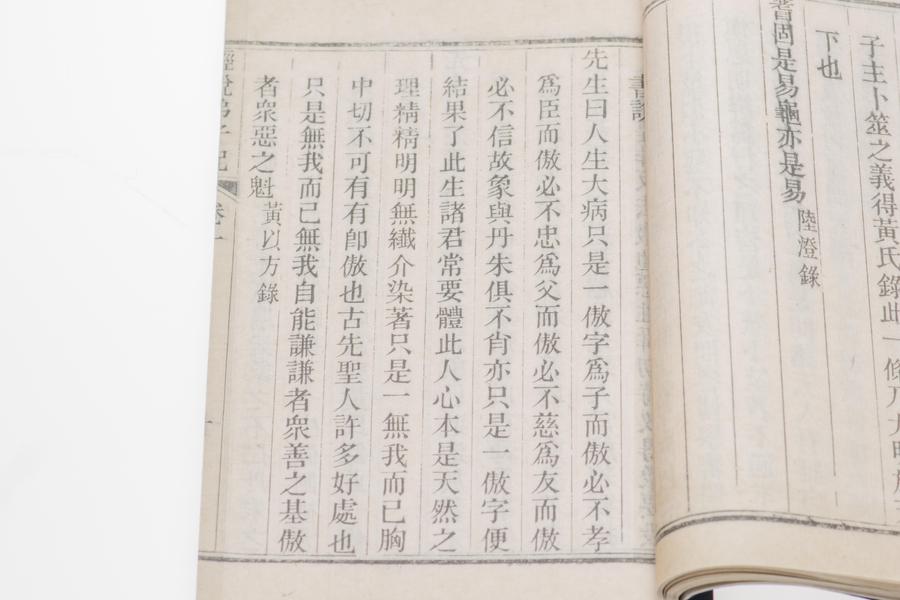 子主卜筮之義得黃氏錄此一條乃大明於
下也
蓍固是易龜亦是易
陸澄錄
先生曰人生大病只是一傲字爲子而傲必不孝
爲臣而傲必不忠爲父而傲必不慈爲友而傲
必不信故象與丹朱俱不肖亦只是一傲字便
結果了此生諸君常要體此人心本是天然之
理精精明明無纖介染著只是一無我而已胸
中切不可有有卽傲也古先聖人許多好處也
只是無我而已無我自能謙謙者衆善之基傲
者衆惡之魁
黃以方錄
經說弟子記
卷一